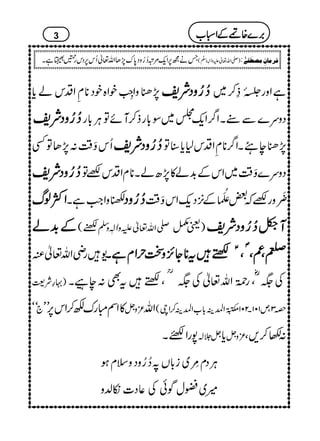 3
برے خاتمے کے اسباب
فرمانِ مصطفٰے: (صلی اللہ تعالیٰ علیہ والہ وسلم) جس نے مجھ پر ایک مرتبہ دُرُود پاک پڑھا اللہ تعالیٰ اُس پر دس رحمتیں بھیجتا ہے۔
ہے اور جلسۂ ذِکر میں دُرُود شریف پڑھنا واجِب خواہ خود نامِ اقدس لے یا
دوسرے سے سنے۔ اگر ایک مجلس میں سوبار ذِکر آئے تو ہر بار دُرُود شریف
پڑھنا چاہئے۔ اگر نامِ اقدس لیا یا سنا تو دُرُود شریف اُس وَقت نہ پڑھا تو کسی
دوسرے وَقت میں اس کے بدلے کا پڑھ لے۔ نامِ اقدس لکھے تو دُرُود شریف
ضَرور لکھے کہ بعض عُلَماء کے نزدیک اس وَقت دُرُود لکھنا واجب ہے۔ اکثر لوگ
آج کل دُرُود شریف (یعنی مکمل صلی اللہ تعالیٰ علیہ والہ وسلم لکھنے) کے بدلے
صلعم، عم، ؐ، ؑ لکھتے ہیں یہ ناجائز و سخت حرام ہے۔ یوہیں رضی اللہ تعالیٰ عنہ
کی جگہ ؓ، رحمۃ اللہ تعالیٰ کی جگہ ؒ لکھتے ہیں، یہ بھی نہ چاہیے۔ (بہارِ شریعت
حصہ ۳ ص ۱۰۱۔۱۰۲ مکتبۃ المدینہ باب المدینہ کراچی) اللہ عزوجل کا اسم مبارک لکھ کر اس پر ’’ج‘‘
نہ لکھا کریں، عزوجل یا جل جلالہ پورا لکھئے۔
ہر دم مری زباں پہ دُرُود و سلام ہو
میری فضول گوئی کی عادت نکالدو